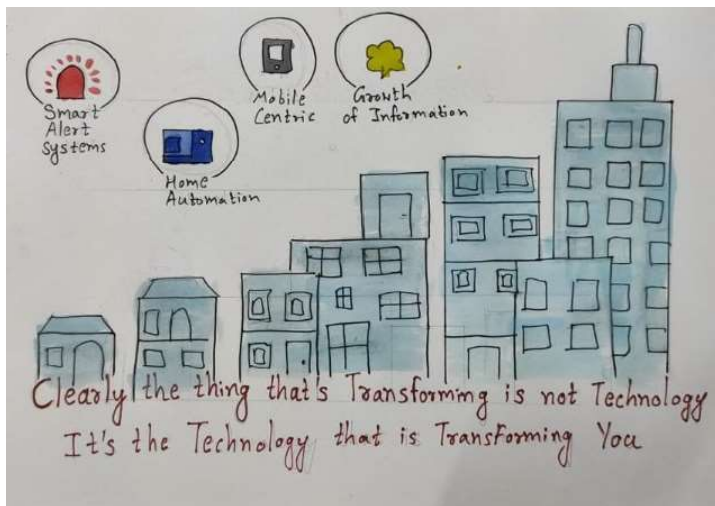 Smart
Alert
Systems
Home
Automation
Mobile
Centric
Growth
of Information
Clearly the thing that's Transforming is not Technology
It's the Technology that is Transforming You